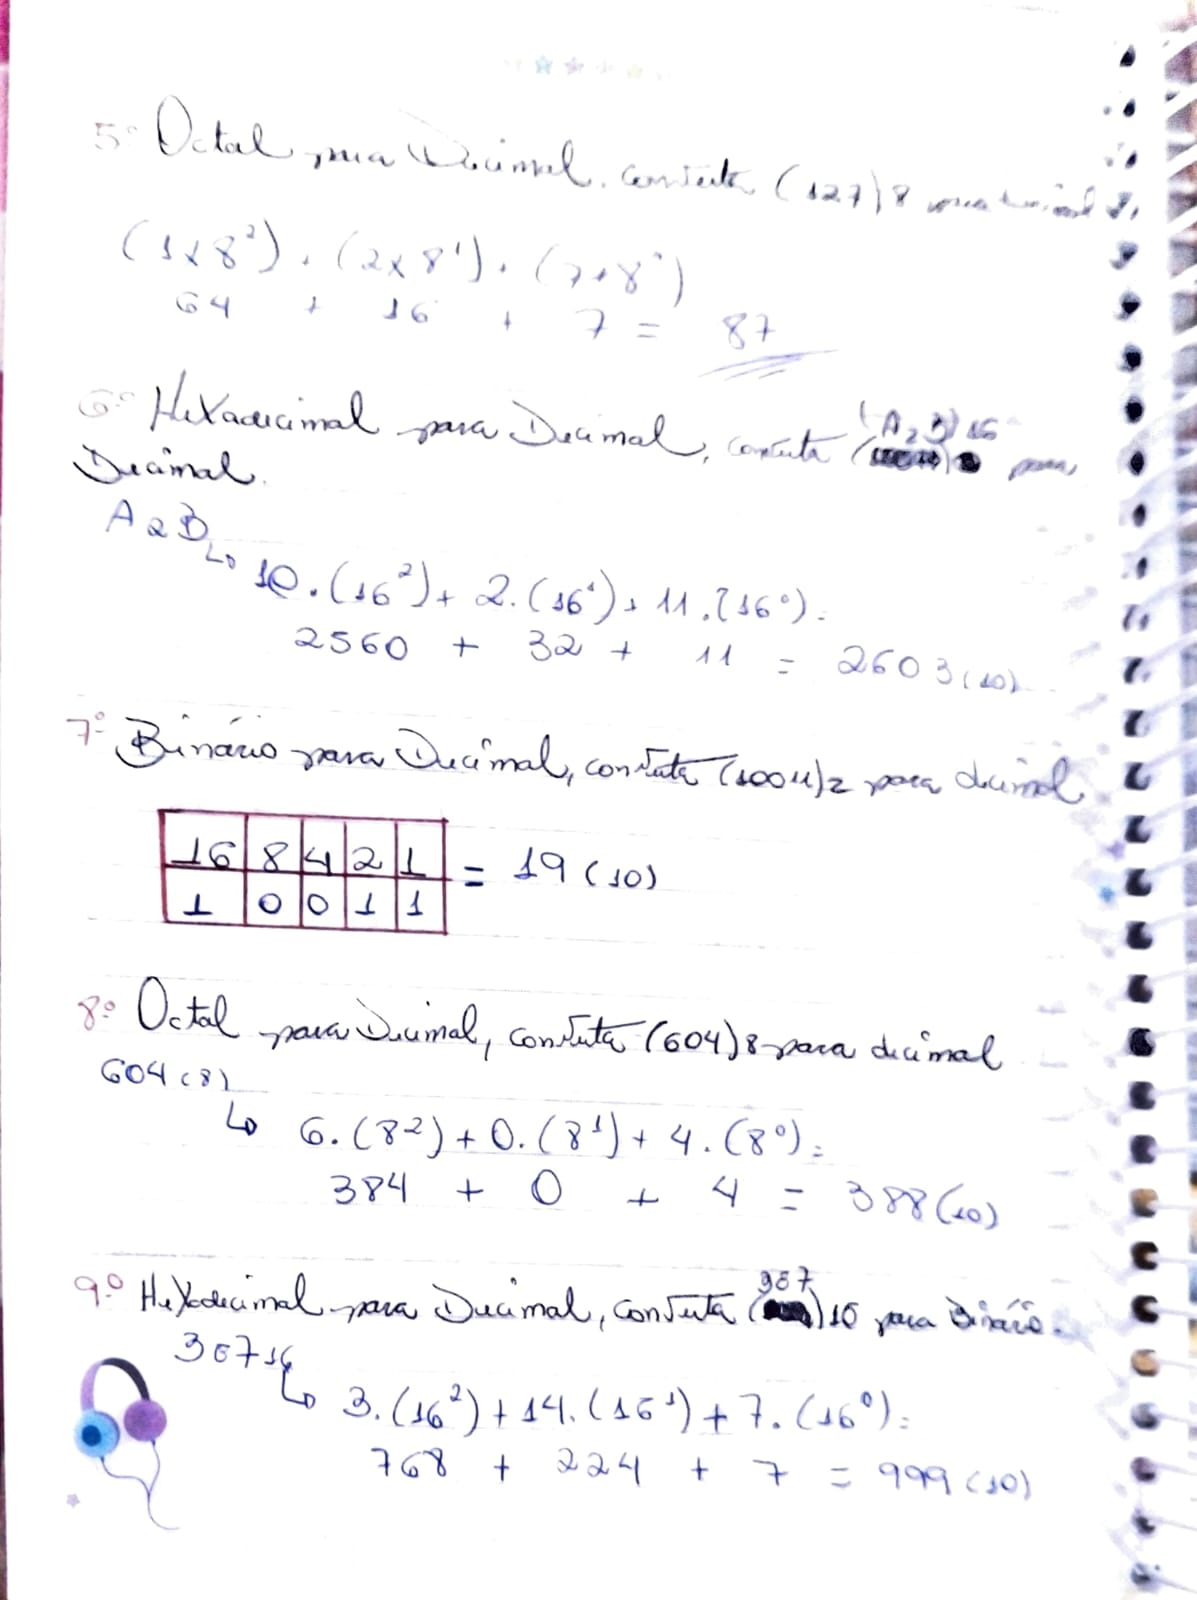 5º Octal para Decimal. converta (127)8 para decimal
(1x8²) + (2x8¹) + (7x8⁰)
64 + 16 + 7 = 87
6º Hexadecimal para Decimal, converta (A2B)16 para
Decimal.
A2B
10.(16²) + 2.(16¹) + 11.(16⁰) =
2560 + 32 + 11 = 2603(10)
7º Binário para Decimal, converta (10011)2 para decimal
16 8 4 2 1 = 19(10)
1 0 0 1 1
8º Octal para Decimal, converta (604)8 para decimal
604(8)
6.(8²) + 0.(8¹) + 4.(8⁰) =
384 + 0 + 4 = 388(10)
9º Hexadecimal para Decimal, converta (3E7)16 para Binário.
3E716
3.(16²) + 14.(16¹) + 7.(16⁰) =
768 + 224 + 7 = 999(10)